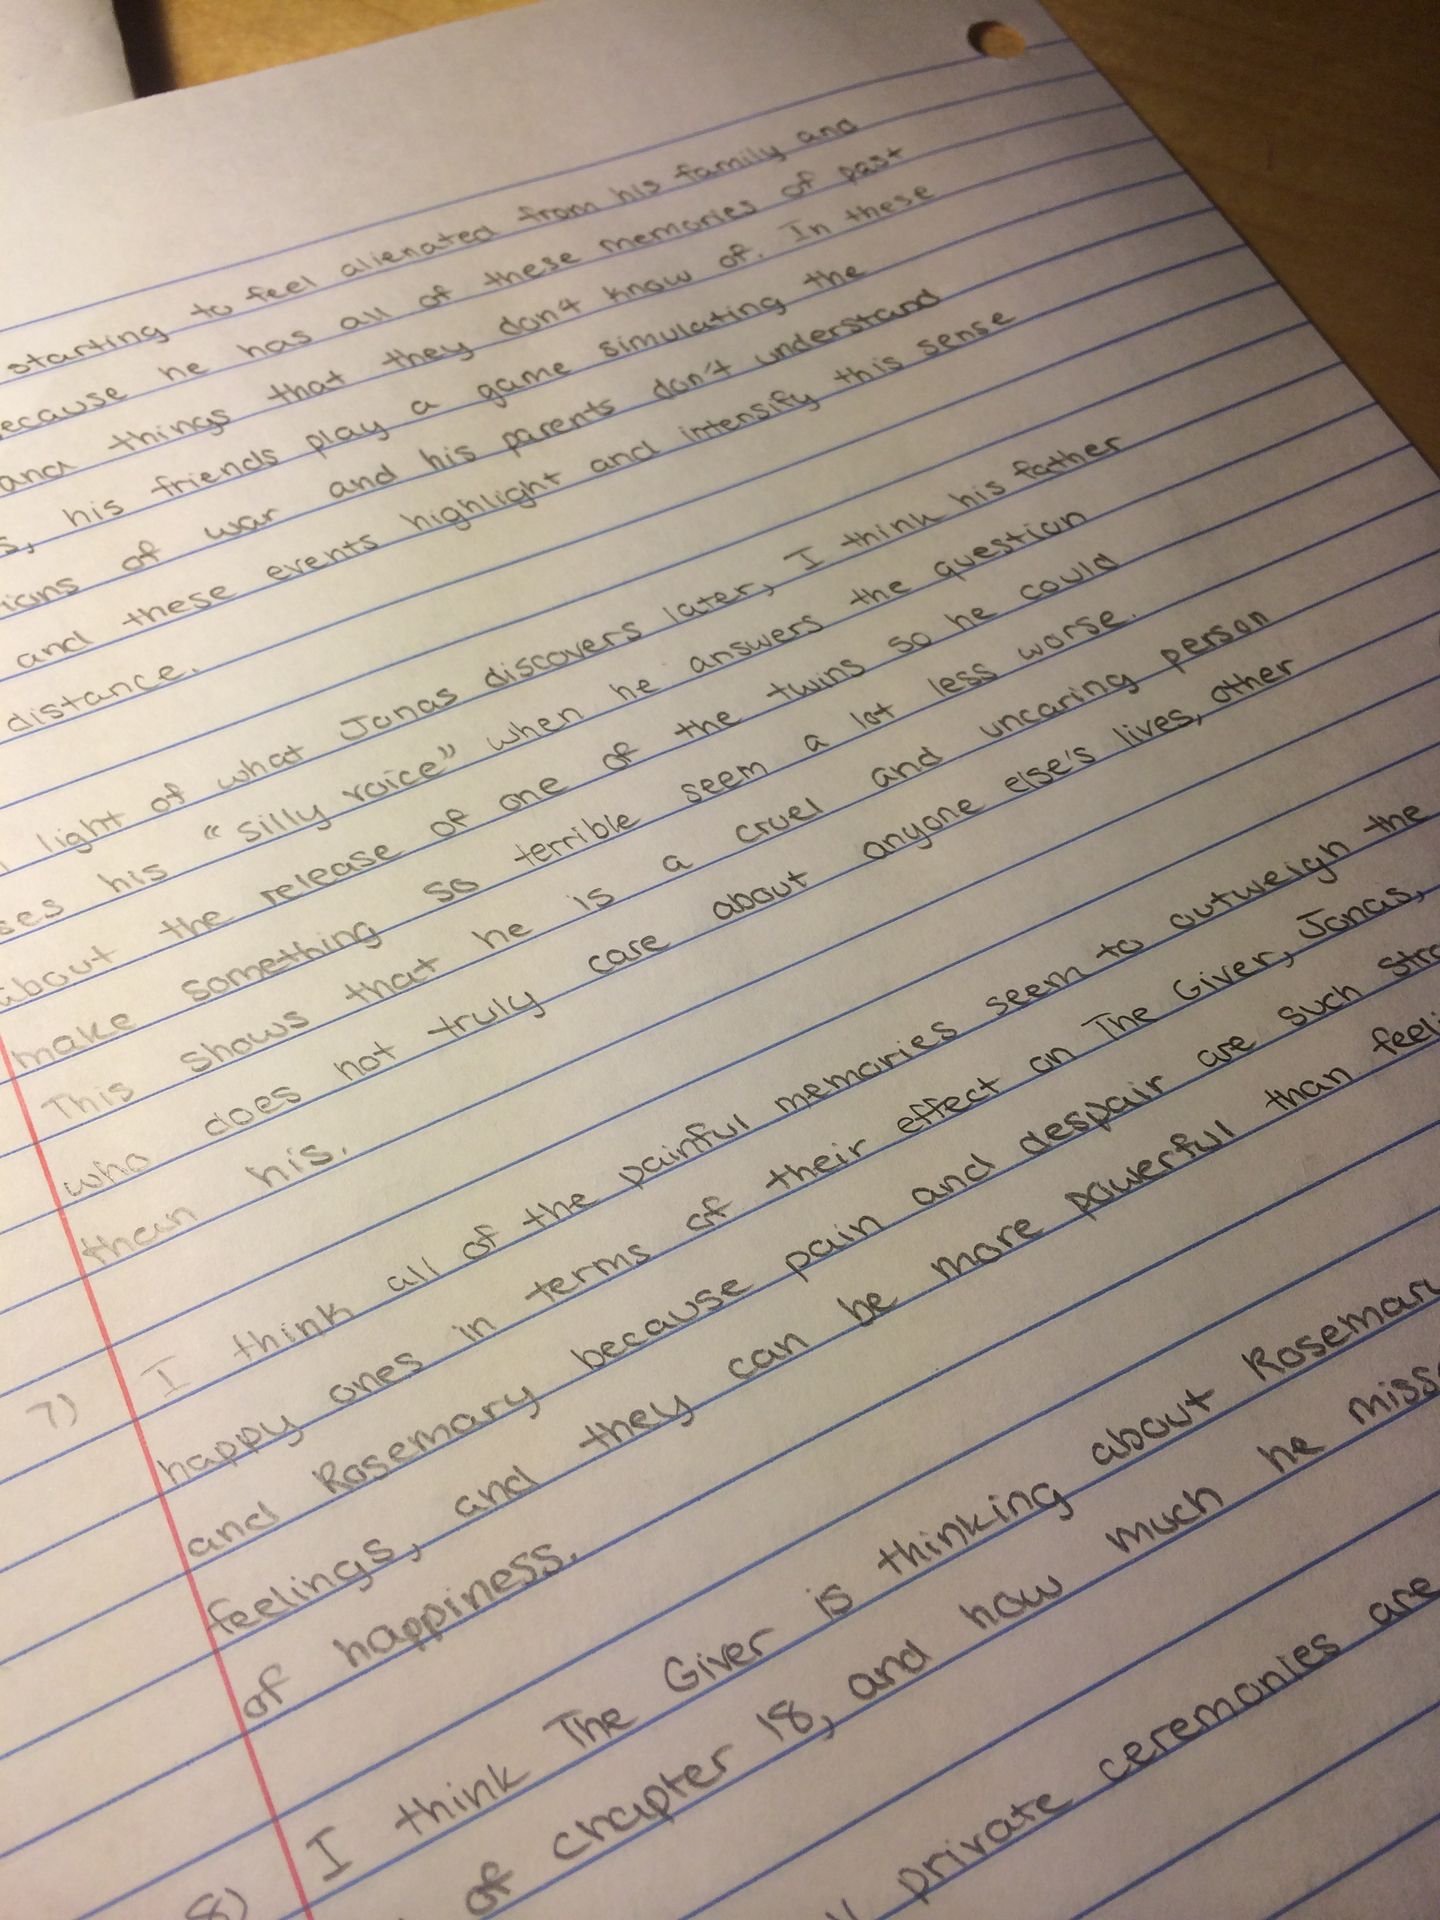 starting to feel alienated from his family and
he has all of these memories of past
and things that they don't know of. In these
his friends play a game simulating the
of war and his parents don't understand
and these events highlight and intensify this sense
distance.
light of what Jonas discovers later, I think his father
his "silly voice" when he answers the question
about the release of one of the twins so he could
make something so terrible seem a lot less worse.
This shows that he is a cruel and uncaring person
who does not truly care about anyone else's lives, other
than his.
7) I think all of the painful memories seem to outweigh the
happy ones in terms of their effect on The Giver, Jonas,
and Rosemary because pain and despair are such
feelings, and they can be more powerful than
of happiness.
8) I think The Giver is thinking about
of chapter 18, and how much he
private ceremonies are